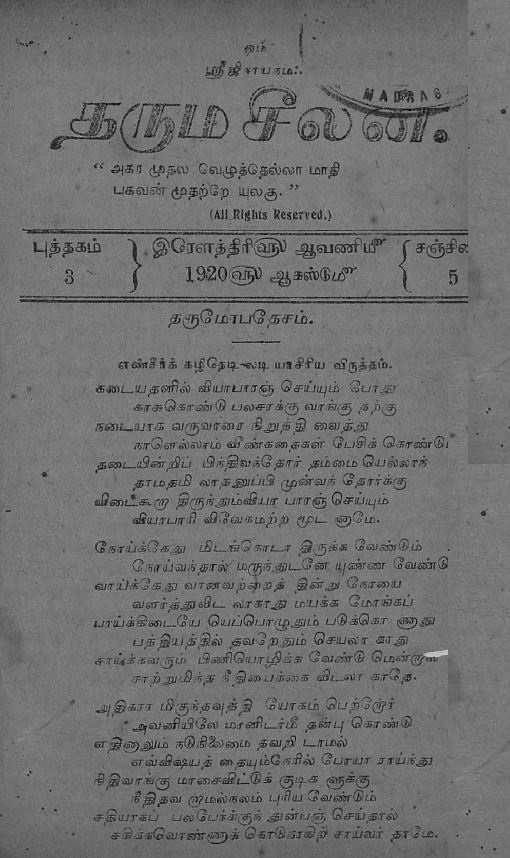 ஓம்
ஸ்ரீஜிநாயநம:.
MADRAS
தரும சீலன்.
“ அகர முதல வேழுத்தெல்லா மாதி
பகவன் முதற்றே யுலகு. ”
(All Rights Reserved.)
புத்தகம் 3
இரௌத்திரி௵ ஆவணி௴
1920௵ ஆகஸ்டு௴
சஞ்சி 5
தருமோபதேசம்.
எண்சீர்க் கழிநெடி லடி யாசிரிய விருத்தம்.
கடையதனில் வியாபாரஞ் செய்யும் போது
காசுகொண்டு பலசரக்கு வாங்கு தற்கு
நடையாக வருவாரை நிறுத்தி வைத்து
நாளெல்லாம் வீண்கதைகள் பேசிக் கொண்டு
தடையின்றிப் பிந்திவந்தோர் தம்மை யெல்லாந்
தாமதமி லாதனுப்பி முன்வந் தோர்க்கு
விடைகூறா திருந்தும்வியா பாரஞ் செய்யும்
வியாபாரி விவேகமற்ற மூட னாமே.
நோய்க்கேது மிடங்கொடா திருக்க வேண்டும்
நோய்வந்தால் மருந்துடனே யுண்ண வேண்டு
வாய்க்கேது வானவற்றைத் தின்று நோயை
வளர்த்துவிட லாகாது மயக்க மோங்கப்
பாய்க்கிடையே யெப்பொழுதும் படுக்கொ ணாது
பத்தியத்தில் தவறேதும் செயலா காது
சாய்க்கவரும் பிணியொழிக்க வேண்டு மென்றால்
சாற்றுமிந்த நீதியைக்கை விடலா காதே.
அதிகார மிகுந்தவுத்தி யோகம் பெற்றோர்
அவனியிலே மானிடர்மீ தன்பு கொண்டு
எதினாலும் நடுநிலைமை தவறி டாமல்
எவ்விஷயத் தையும்நேரில் போயா ராய்ந்து
நிதிவாங்கு மாசைவிட்டுக் குடிக ளுக்கு
நீதிதவ றாமல்நலம் புரிய வேண்டும்
சதியாகப் பலபேர்க்குந் துன்பஞ் செய்தால்
சகிக்கவொண்ணாக் கொடுநரகிற் சாய்வர் தாமே.